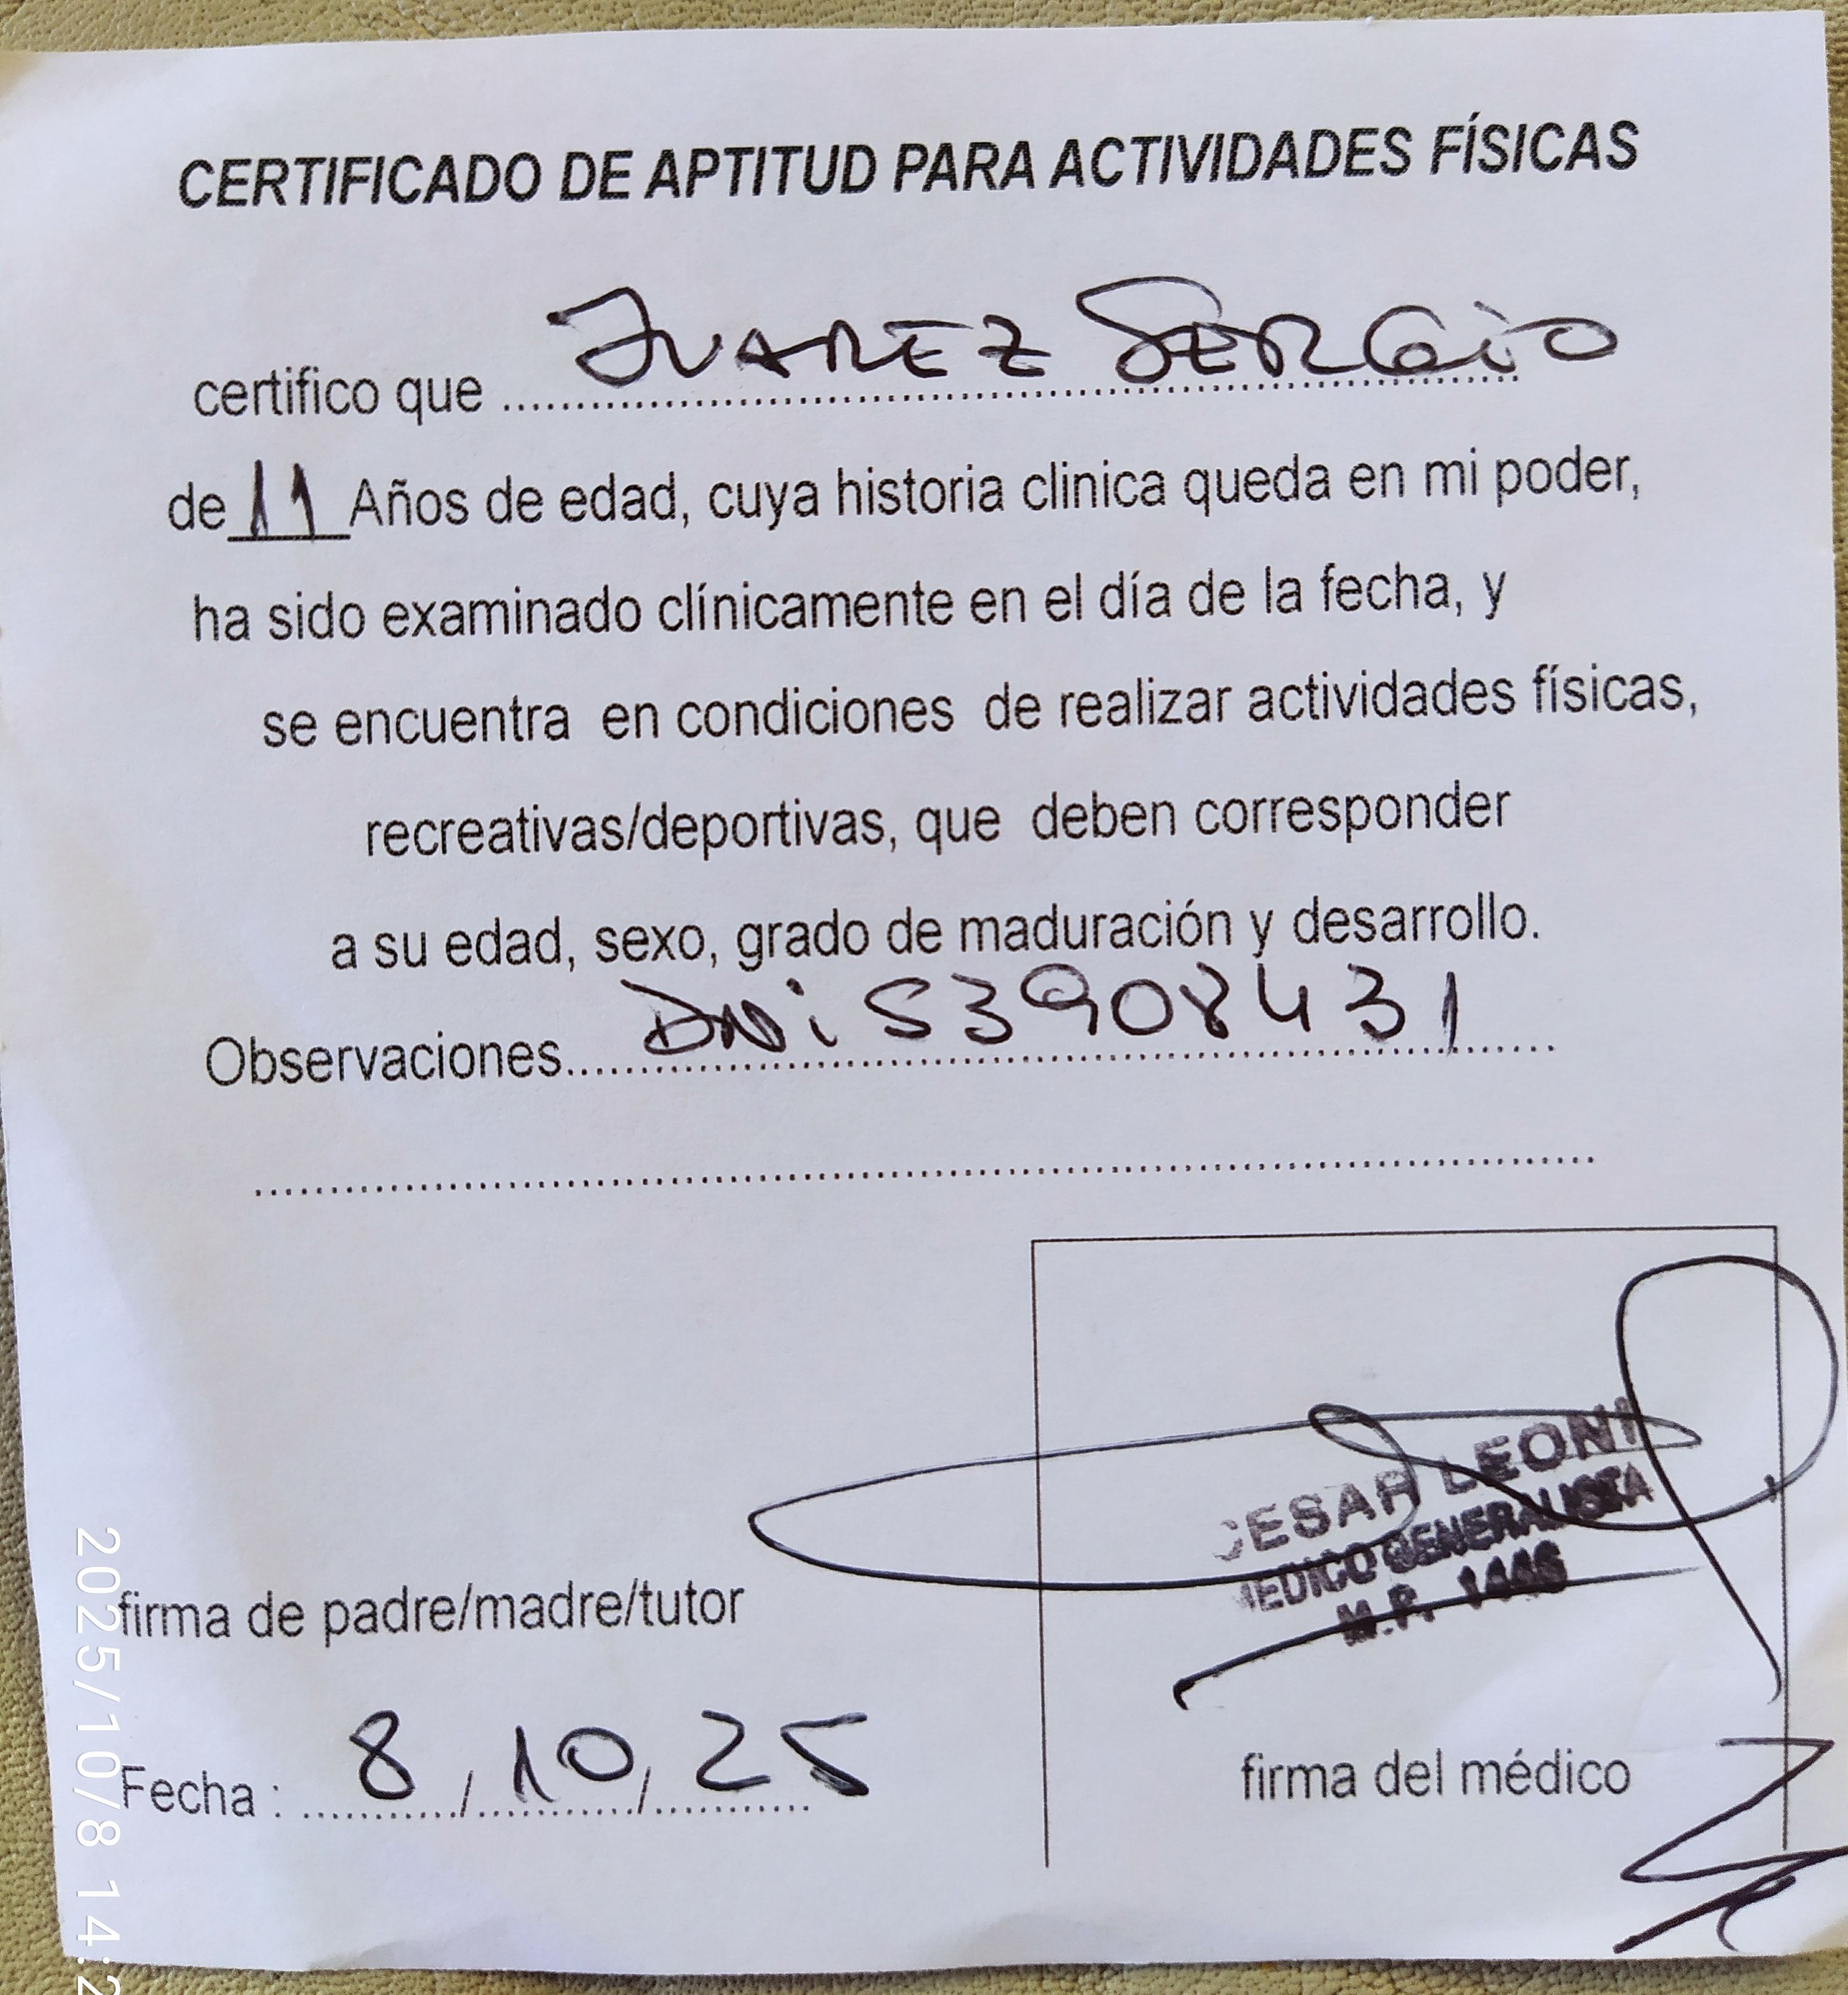 CERTIFICADO DE APTITUD PARA ACTIVIDADES FÍSICAS
certifico que JUAREZ SERGiO
de 11 Años de edad, cuya historia clinica queda en mi poder,
ha sido examinado clínicamente en el día de la fecha, y
se encuentra en condiciones de realizar actividades físicas,
recreativas/deportivas, que deben corresponder
a su edad, sexo, grado de maduración y desarrollo.
Observaciones DNi 53908431
CESAR LEONI
MEDICO GENERALISTA
M.P.
firma de padre/madre/tutor
firma del médico
Fecha : 8 / 10 / 25
2025/10/8 14:2